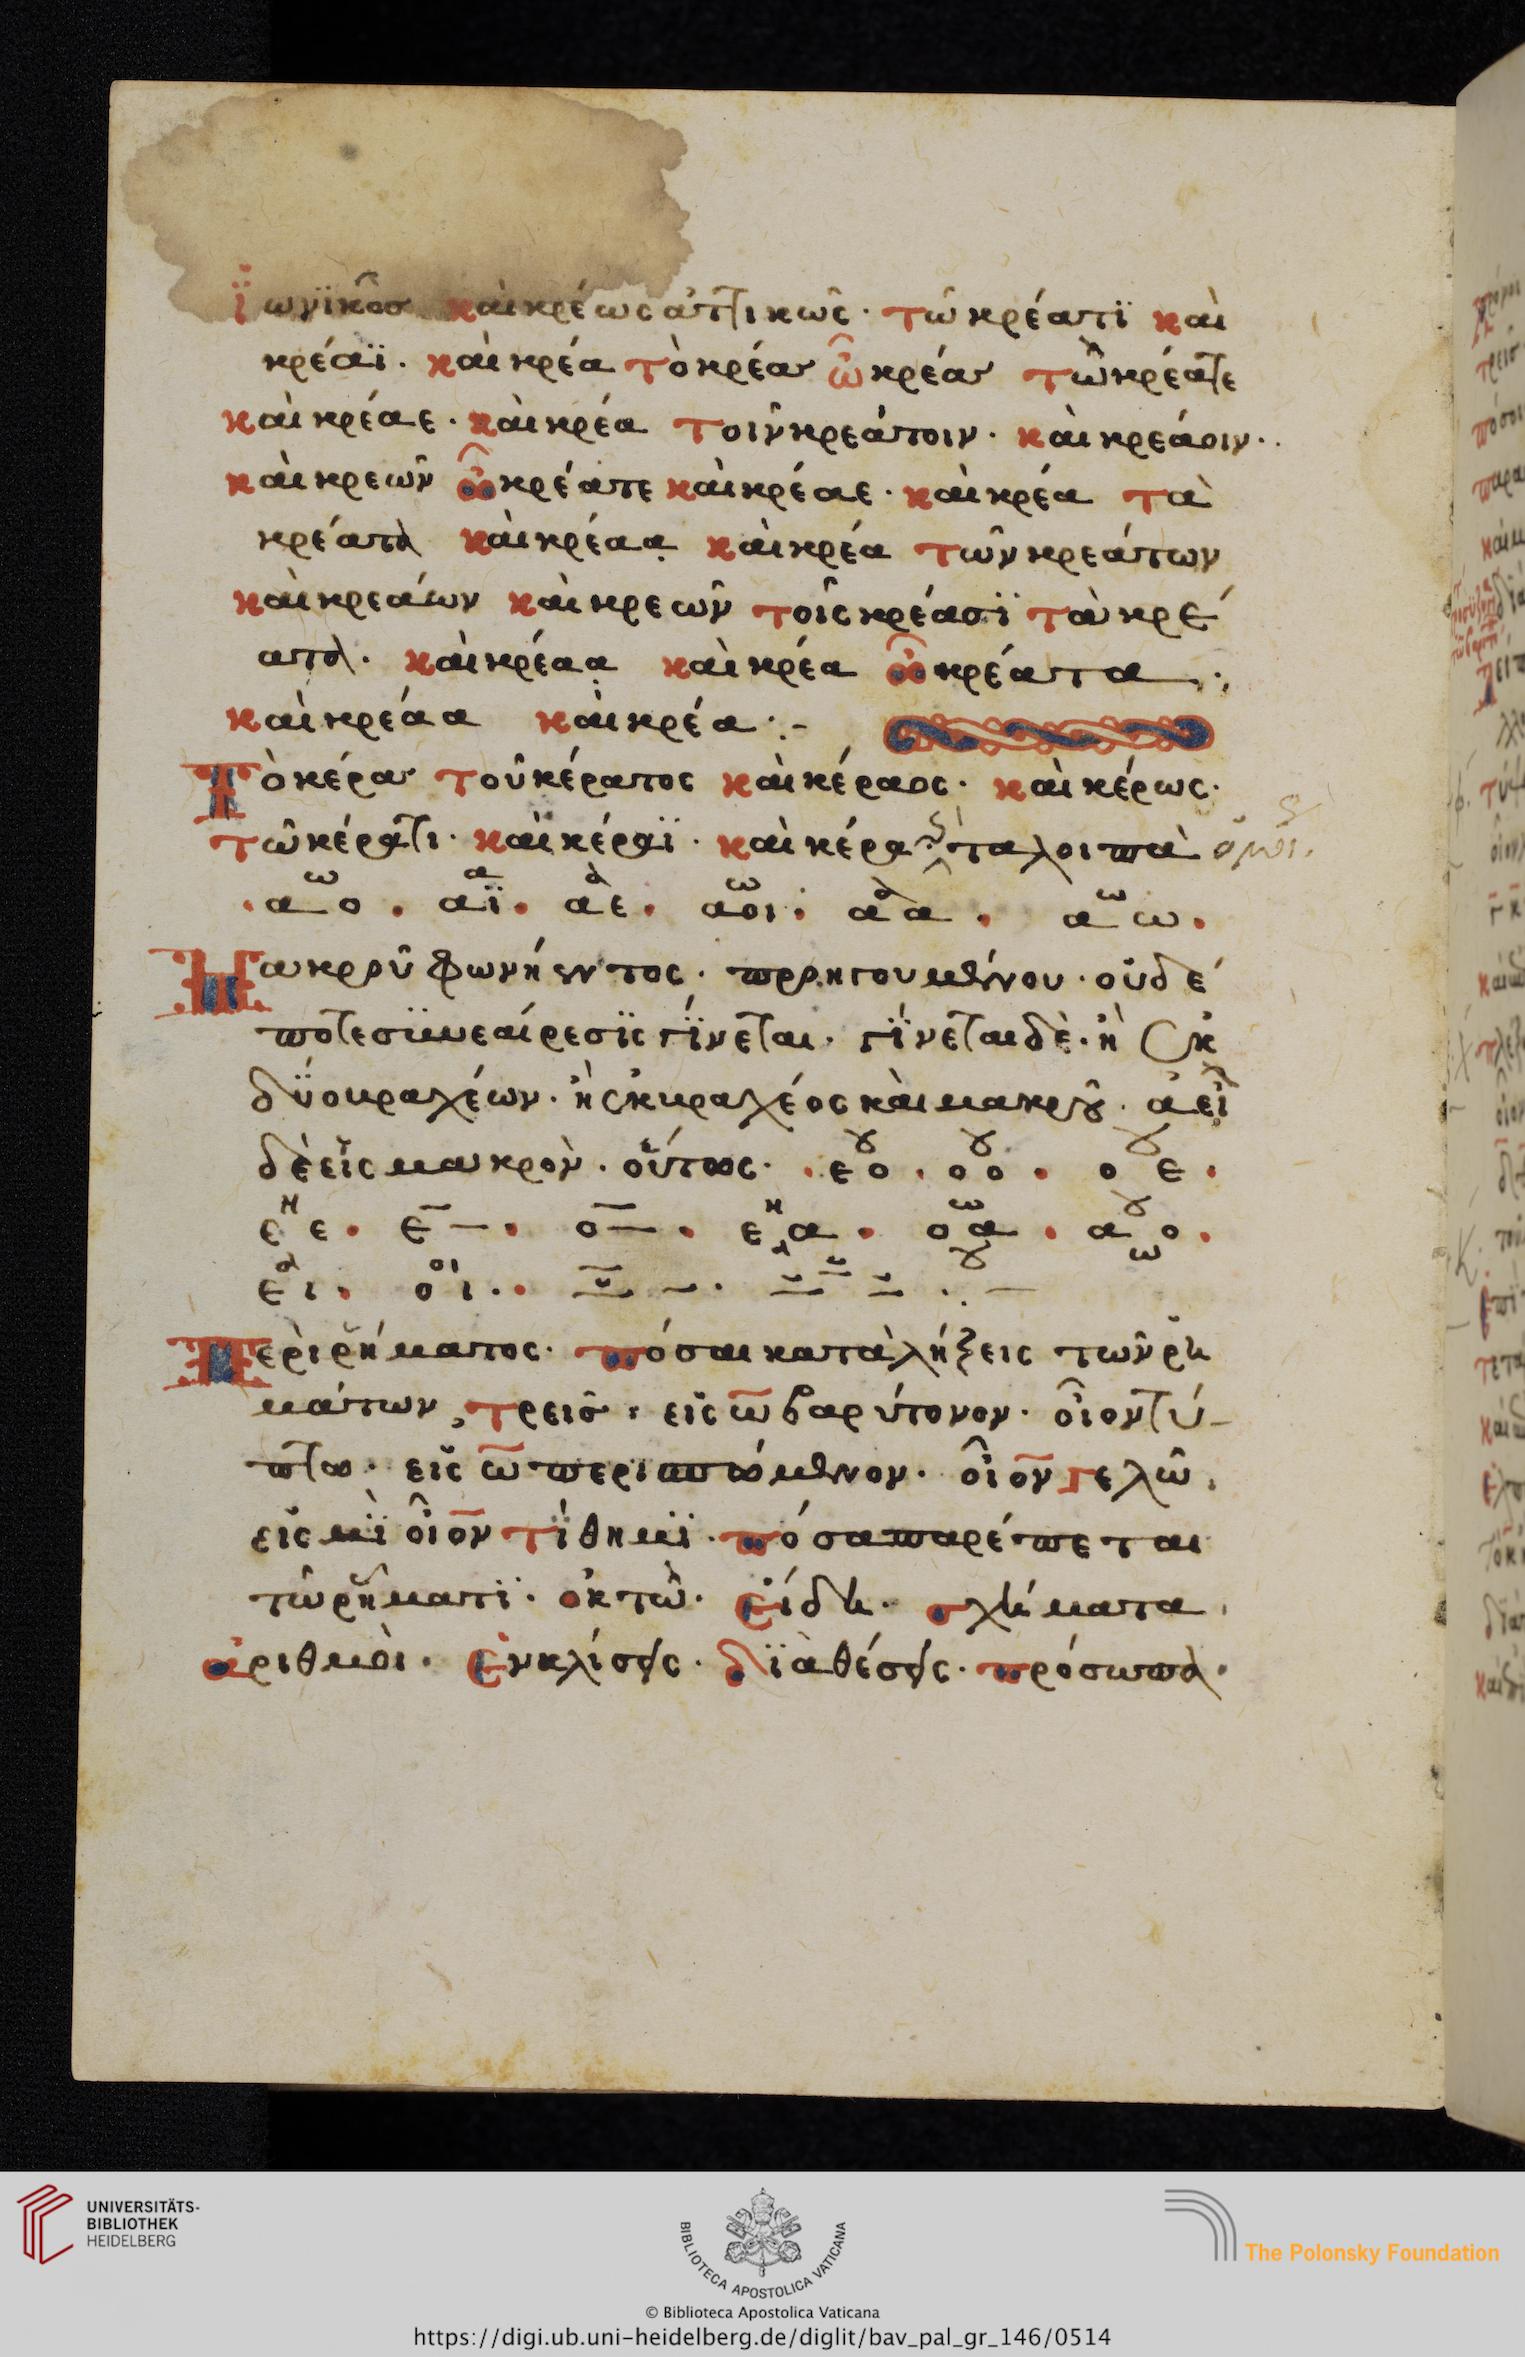 ϊωνϊκῶσ καὶ κρέως ἀττικῶς· τῶ κρέατϊ καὶ
κρέαϊ· καὶ κρέα τὸ κρέασ ὦ κρέασ τὼ κρέατε
καὶ κρέαε· καὶ κρέα τοιν κρεάτοιν· καὶ κρεάοιν··
καὶ κρεῶν ὦ κρέατε καὶ κρέαε· καὶ κρέα τὰ
κρέατα καὶ κρέαα καὶ κρέα τῶν κρεάτων
καὶ κρεάων καὶ κρεῶν τοῖς κρέασϊ τὰ κρέ
ατα· καὶ κρέαα καὶ κρέα ὦ κρέατα
καὶ κρέαα καὶ κρέα·:-
Τὸ κέρασ τοῦ κέρατος καὶ κέραος· καὶ κέρως·
τῶ κέρατι· καὶ κέραϊ· καὶ κέρα τα λοιπὰ ὅμοι.
ω α α ω α ω
·αο· αϊ· αε· αοι· αα· αω·
Μακροῦ φωνήεντος· προηγουμένου· οὐδέ
ποτε συναίρεσϊς γίνεται· γίνεται δὲ· ἢ ἐκ
δύο βραχέων· ἢ ἐκ βραχέος καὶ μακροῦ· ἀεὶ
δὲ εἰς μακρὸν· οὕτως· ·εο· οο· οε·
εε· ε– · ο– · εα· οα· αο·
ει· οι··
Περὶ ῥήματος· πόσαι καταλήξεις τῶν ῥη
μάτων, τρεισ· εἰς ω βαρύτονον· οἷον τύ-
πτω· εἰς ω περισπώμενον· οἷον γελῶ.
εἰς μϊ οἷον τίθημϊ· πόσα παρέπεται
τῶ ῥήματϊ· ὀκτὼ· εἴδη· σχήματα.
ἀριθμοὶ· ἐνκλίσεις· διαθέσεις· πρόσωπα·
UNIVERSITÄTS-
BIBLIOTHEK
HEIDELBERG
BIBLIOTECA APOSTOLICA VATICANA
The Polonsky Foundation
© Biblioteca Apostolica Vaticana
https://digi.ub.uni-heidelberg.de/diglit/bav_pal_gr_146/0514